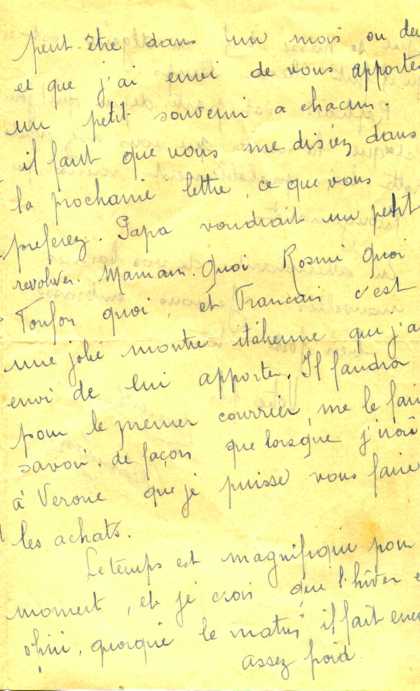 peut être dans un mois ou deu
et que j'ai envi de vous apporter
un petit souvenir a chacun.
il faut que vous me disiez dans
la prochaine lettre, ce que vous
preferez. Papa voudrait un petit
revolver. Maman. Quoi Rosmi Quoi
Tonfon quoi, et Francais c'est
une jolie montre italienne que j'a
envi de lui apporte. Il faudra
pour le premier courrier, me le fai
savoir. de façon que lorsque j'irai
à Verone que je puisse vous faire
les achats.
Le temps est magnifique pour
moment, et je crois que l'hiver e
fini, quoique le matin il fait enco
assez froid